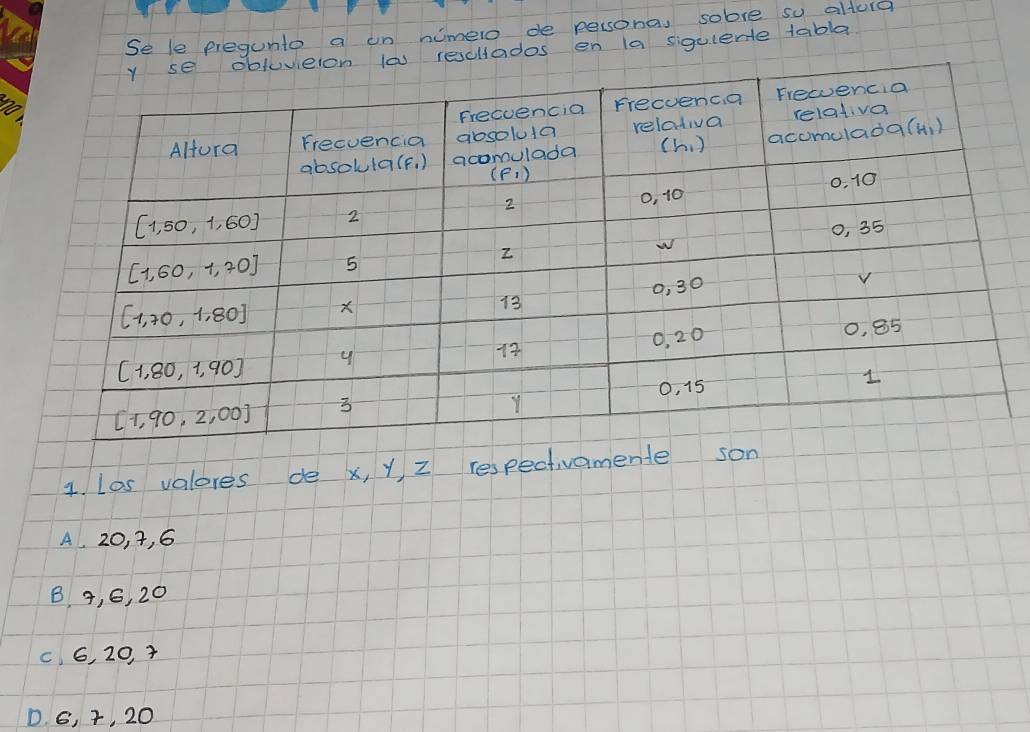 Se le pregunto a un número de personas sobre su altura
Y se obtuvieron los resultados en la siguiente tabla
Altura | Frecuencia absoluta (F.) | Frecuencia absoluta acomulada (F1) | Frecuencia relativa (h1) | Frecuencia relativa acomulada (H1)
[1,50, 1,60] | 2 | 2 | 0,10 | 0.10
[1,60, 1,70] | 5 | Z | W | 0,35
[1,70, 1,80] | X | 13 | 0,30 | V
[1,80, 1,90] | 4 | 17 | 0,20 | 0,85
[1,90, 2,00] | 3 | Y | 0,15 | 1
1. Los valores de x, Y, Z respectivamente son
A. 20,7,6
B. 7,6,20
C. 6,20,7
D. 6,7,20